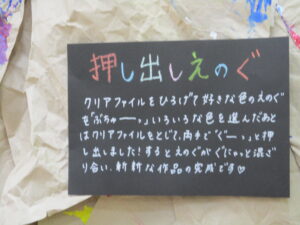 押し出しえのぐ
クリアファイルをひろげて好きな色のえのぐ
を「ぶちゅーっ」いろいろな色を選んだあと
はクリアファイルをとじて、両手で「ぐーっ」と押
し出しました！するとえのぐがぐにゃっと混ざ
り合い、斬新な作品の完成です♡